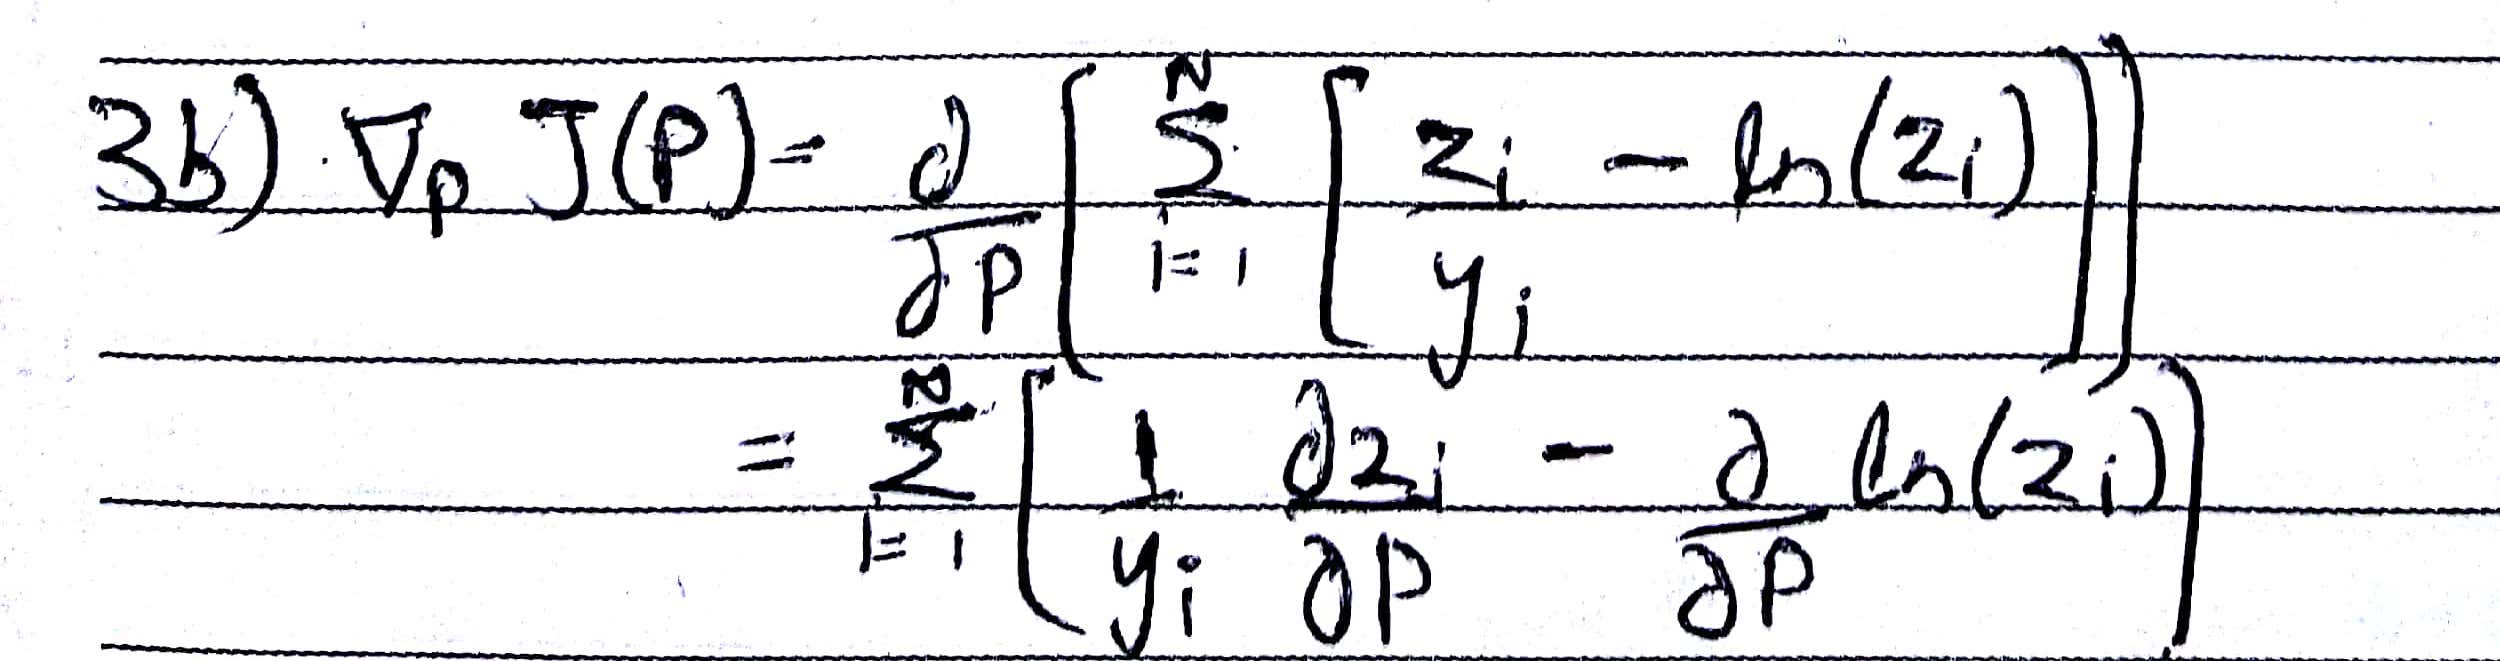 3b) ∇_p J(P) = ∂/∂P [ Σ_{i=1}^{N} [ z_i/y_i - ln(z_i) ] ]
= Σ_{i=1}^{N} [ 1/y_i ∂z_i/∂P - ∂/∂P ln(z_i) ]